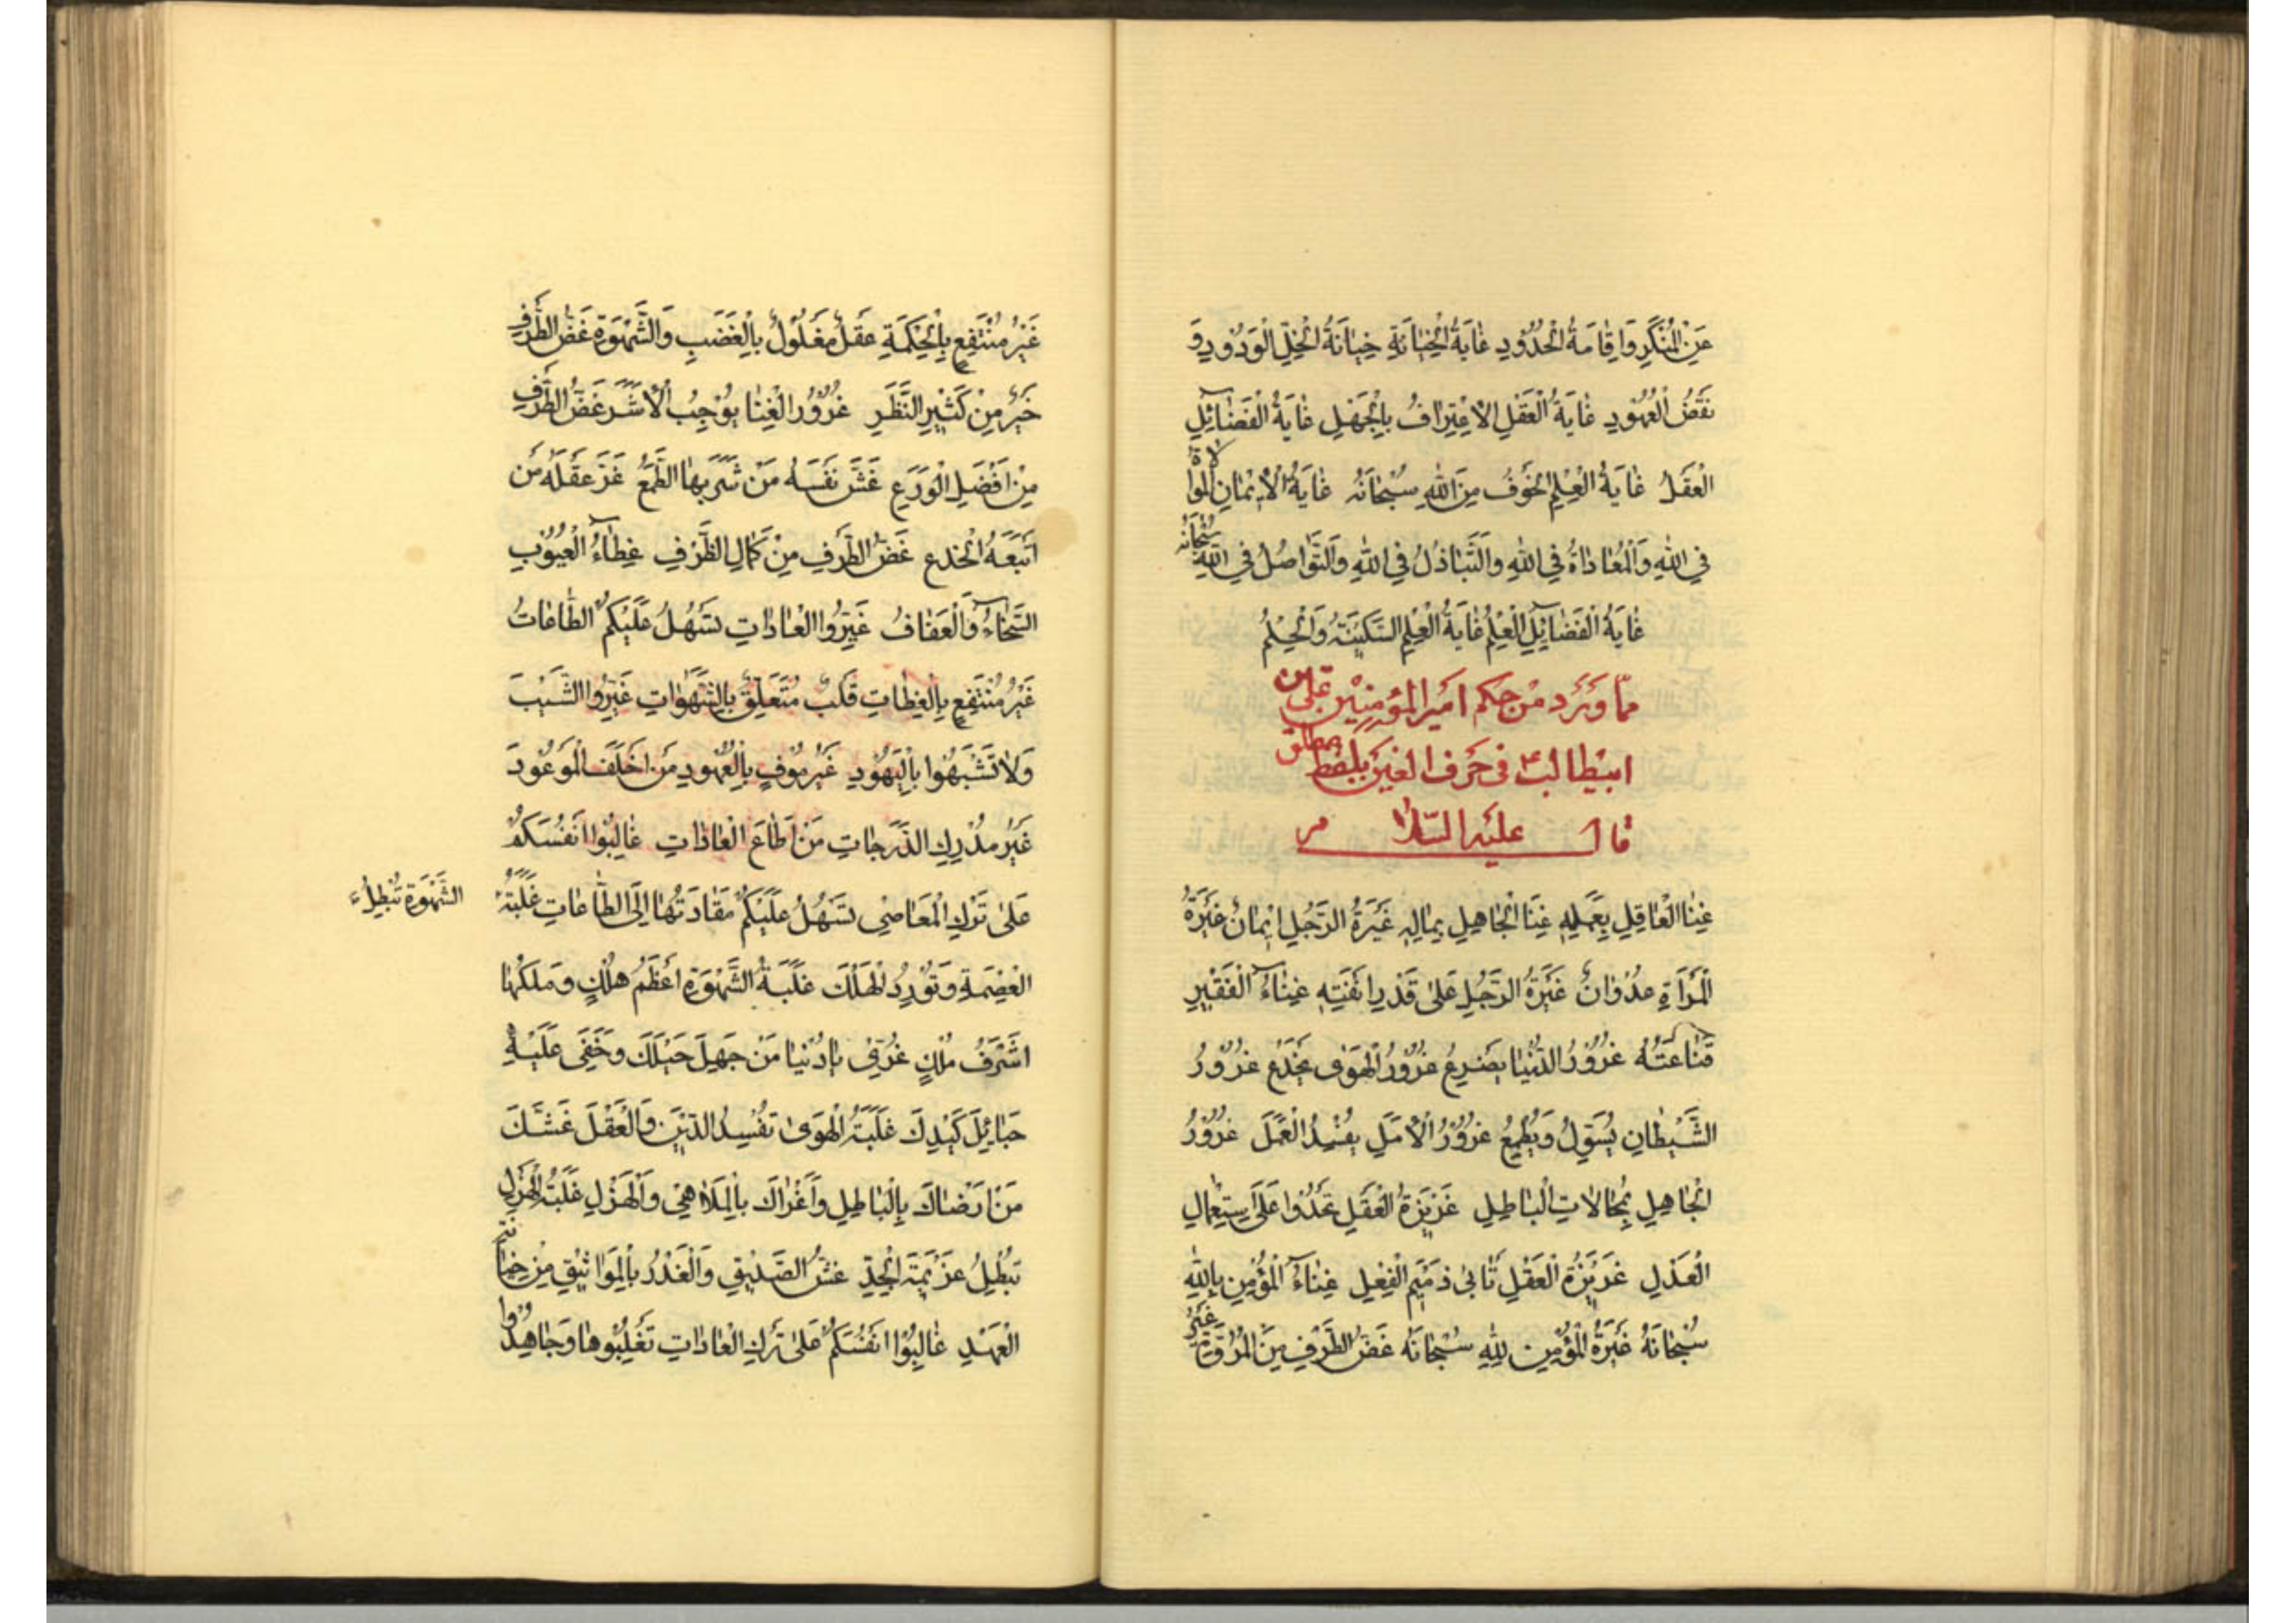 عَنِ الْمُنْكَرِ وَاِقَامَةُ الْحُدُوْدِ غَايَةُ الْخِيَانَةِ خِيَانَةُ الْخِلِّ الْوَدُوْدِ وَ
نَقْضُ الْعُهُوْدِ غَايَةُ الْعَقْلِ الْاِعْتِرَافُ بِالْجَهْلِ غَايَةُ الْفَضَائِلِ
الْعَقْلُ غَايَةُ الْعِلْمِ الْخَوْفُ مِنَ اللهِ سُبْحَانَهُ غَايَةُ الْاِيْمَانِ الْمُوَالَاةُ
فِي اللهِ وَالْمُعَادَاةُ فِي اللهِ وَالتَّبَاذُلُ فِي اللهِ وَالتَّوَاصُلُ فِي اللهِ سُبْحَانَهُ
غَايَةُ الْفَضَائِلِ الْعِلْمُ غَايَةُ الْعِلْمِ السَّكِيْنَةُ وَالْحِلْمُ
مما وَرَد من حِكم امير المؤمِنِيْن على بن
ابيطالب ع فى حَرف الغين بلفظ مطلق
قال عليه السّلام
غِنَا الْعَاقِلِ بِعِلْمِهِ غِنَا الْجَاهِلِ بِمَالِهِ غَيْرَةُ الرَّجُلِ اِيْمَانٌ غَيْرَةُ
الْمَرْاَةِ عُدْوَانٌ غَيْرَةُ الرَّجُلِ عَلَى قَدْرِ اَنَفَتِهِ غِنَاءُ الْفَقِيْرِ
قَنَاعَتُهُ غُرُوْرُ الدُّنْيَا يَصْرَعُ غُرُوْرُ الْهَوَى يَخْدَعُ غُرُوْرُ
الشَّيْطَانِ يُسَوِّلُ وَيُطْمِعُ غُرُوْرُ الْاَمَلِ يُفْسِدُ الْعَمَلَ غُرُوْرُ
الْجَاهِلِ بِمُحَالَاتِ الْبَاطِلِ غَرِيْزَةُ الْعَقْلِ تَحْدُوْا عَلَى اسْتِعْمَالِ
الْعَدْلِ غَرِيْزَةُ الْعَقْلِ تَأْبَى ذَمِيْمَ الْفِعْلِ غِنَاءُ الْمُؤْمِنِ بِاللهِ
سُبْحَانَهُ غَيْرَةُ الْمُؤْمِنِ لِلّهِ سُبْحَانَهُ غَضُّ الطَّرْفِ مِنَ الْمُرُوَّةِ غَيْرُ
غَيْرُ مُنْتَفِعٍ بِالْحِكْمَةِ عَقْلٌ مَغْلُوْلٌ بِالْغَضَبِ وَالشَّهْوَةِ غَضُّ الطَّرْفِ
خَيْرٌ مِنْ كَثِيْرِ النَّظَرِ غُرُوْرُ الْغِنَا يُوْجِبُ الْاَشَرَ غَضُّ الطَّرْفِ
مِنْ اَفْضَلِ الْوَرَعِ غَشَّ نَفْسَهُ مَنْ شَرَّبَهَا الطَّمَعَ غَرَّ عَقْلَهُ مَنْ
اَتْبَعَهُ الْخُدَع غَضُّ الطَّرْفِ مِنْ كَمَالِ الظَّرْفِ غِطَاءُ الْعُيُوْبِ
السَّخَاءُ وَالْعَفَافُ غَيِّرُوا الْعَادَاتِ تَسْهُلُ عَلَيْكُمُ الطَّاعَاتُ
غَيْرُ مُنْتَفِعٍ بِالْعِظَاتِ قَلْبٌ مُتَعَلِّقٌ بِالشَّهَوَاتِ غَيِّرُوا الشَّيْبَ
وَلَا تَشَبَّهُوا بِالْيَهُوْدِ غَيْرُ مُوْفٍ بِالْعُهُوْدِ مَنْ اَخْلَفَ الْمَوْعُوْدَ
غَيْرُ مُدْرِكِ الدَّرَجَاتِ مَنْ اَطَاعَ الْعَادَاتِ غَالِبُوْا اَنْفُسَكُمْ
عَلَى تَرْكِ الْمَعَاصِى تَسْهُلُ عَلَيْكُمْ مَقَادَتُهَا اِلَى الطَّاعَاتِ غَلَبَةُ
الشَّهْوَةِ تُبْطِلُ
الْعِصْمَةِ وَتُوْرِدُ الْهَلْكَ غَلَبَةُ الشَّهْوَةِ اَعْظَمُ هُلْكٍ وَمَلَكُهَا
اَشْرَفُ مُلْكٍ غُرِّى يَا دُنْيَا مَنْ جَهِلَ حِيَلَكَ وَخَفِىَ عَلَيْهِ
حَبَائِلَ كَيْدِكَ غَلَبَةُ الْهَوَى تُفْسِدُ الدِّيْنَ وَالْعَقْلَ غَشَّكَ
مَنْ اَرْضَاكَ بِالْبَاطِلِ وَاَغْرَاكَ بِالْمَلَاهِيْ وَالْهَزْلِ غَلَبَةُ الْهَزْلِ
تُبْطِلُ عَزِيْمَةَ الْجِدِّ غِشُّ الصَّدِيْقِ وَالْغَدْرُ بِالْمَوَاثِيْقِ مِنْ خِيَانَةِ
الْعَهْدِ غَالِبُوْا اَنْفُسَكُمْ عَلَى تَرْكِ الْعَادَاتِ تَغْلِبُوهَا وَجَاهِدُوا